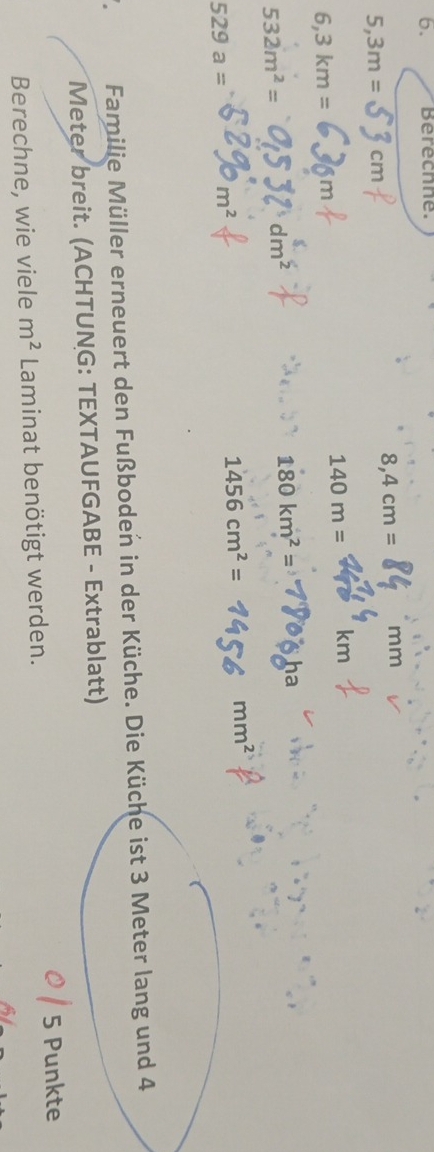 6. Berechne.
5,3m = 53 cm f 8,4 cm = 84 mm ✓
6,3 km = 630 m f 140 m = km f
532m² = 0,532 dm² f 180 km² = 18000 ha ✓
529 a = 5290 m² f 1456 cm² = 1456 mm² f
Familie Müller erneuert den Fußboden in der Küche. Die Küche ist 3 Meter lang und 4
Meter breit. (ACHTUNG: TEXTAUFGABE - Extrablatt)
0/5 Punkte
Berechne, wie viele m² Laminat benötigt werden.